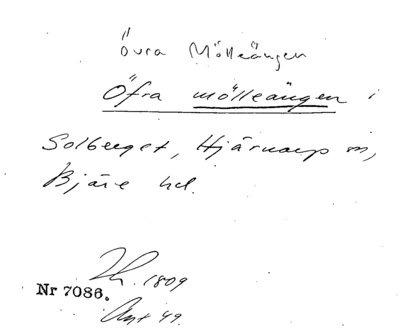 Övra Mölleängen
Öfra mölleängen i
Solberget, Hjärnarp sn,
Bjäre hd.
1809
Nr 7086.
49.